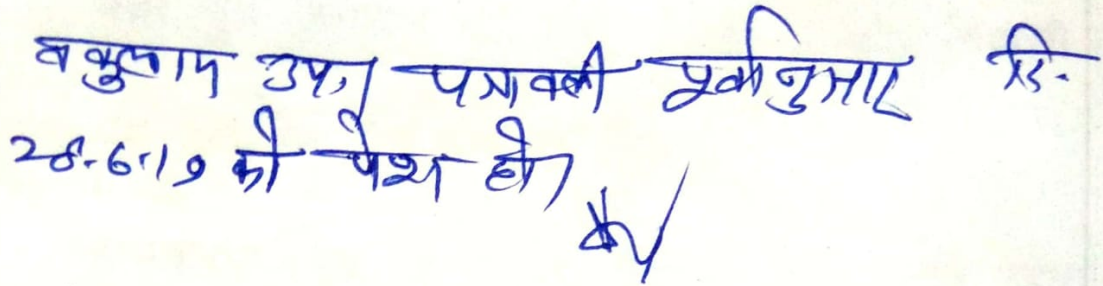 वकुलाय उप। पत्रावली पूर्वानुसार दि.
28.6.19 को पेश हो।